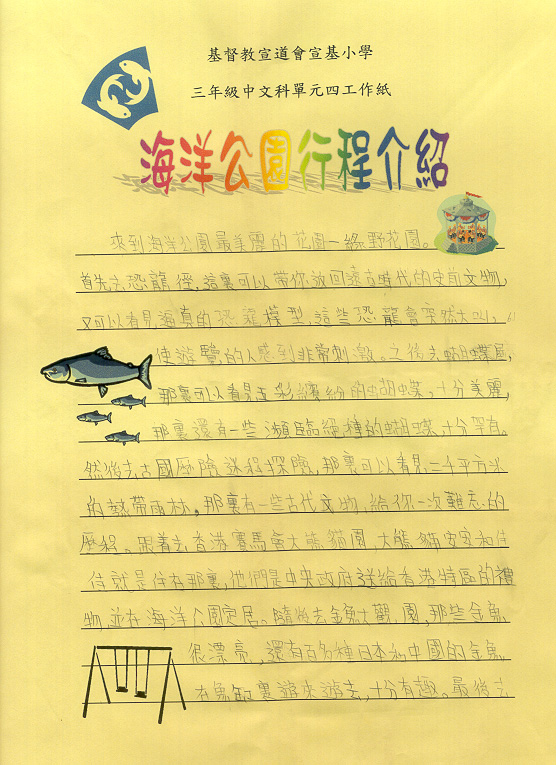 基督教宣道會宣基小學
三年級中文科單元四工作紙
海洋公園行程介紹
來到海洋公園最美麗的花園—綠野花園。
首先去恐龍徑,這裏可以帶你返回遠古時代的史前文物,
又可以看見逼真的恐龍模型,這些恐龍會突然大叫,
使遊覽的人感到非常刺激。之後去蝴蝶屋,
那裏可以看見五彩繽紛的蝴蝶,十分美麗,
那裏還有一些瀕臨絕種的蝴蝶,十分罕有。
然後去古國歷險謎程探險,那裏可以看見二千平方米
的熱帶雨林,那裏有一些古代文物,給你一次難忘的
歷程。跟着去香港賽馬會大熊貓園,大熊貓安安和佳
佳就是住在那裏,他們是中央政府送給香港特區的禮
物,並在海洋公園定居。隨後去金魚大觀園,那些金魚
很漂亮,還有百多種日本和中國的金魚
在魚缸裏游來游去,十分有趣。最後去